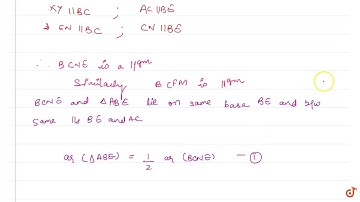 XY ||BC ; AC ||BE
⇒ EN ||BC ; CN ||BE
∴ BCNE is a ||gm
Similarly BCFM is ||gm
BCNE and △ABE lie on same base BE and b/w
same ||s BE and AC
ar (△ABE) = 1/2 ar (BCNE) — ①